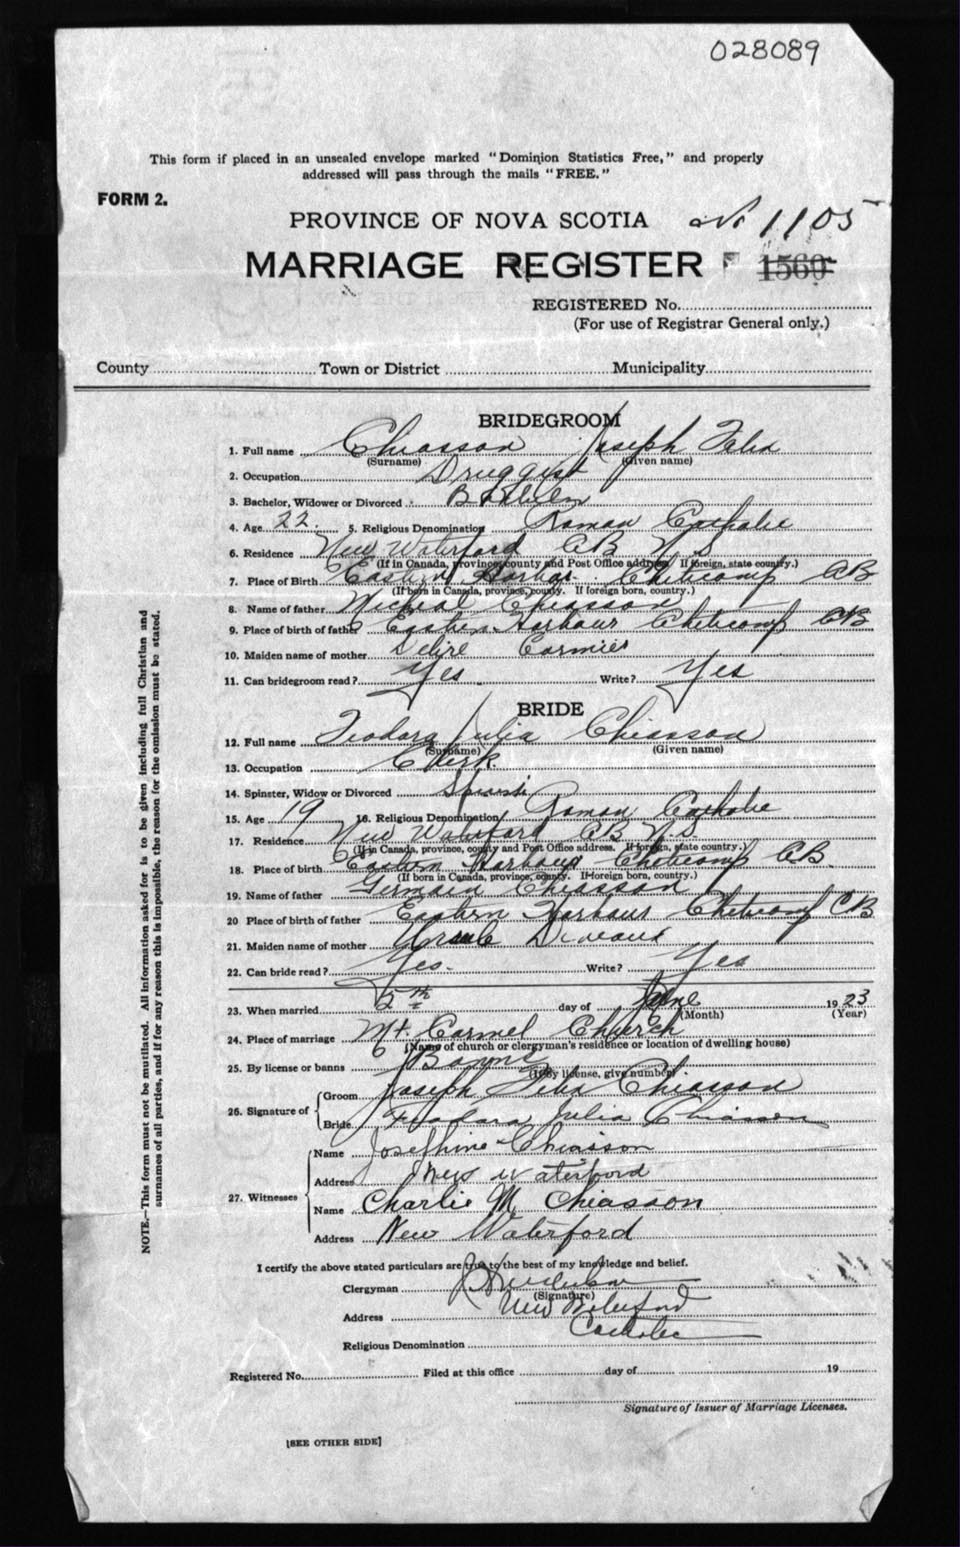 028089
This form if placed in an unsealed envelope marked "Dominion Statistics Free," and properly
addressed will pass through the mails "FREE."
FORM 2.
PROVINCE OF NOVA SCOTIA No 1105
MARRIAGE REGISTER 1560
REGISTERED No.
(For use of Registrar General only.)
County Town or District Municipality
BRIDEGROOM
1. Full name Chiasson Joseph Felix
(Surname) (Given name)
2. Occupation Druggist
3. Bachelor, Widower or Divorced
4. Age 22. 5. Religious Denomination Roman Catholic
6. Residence New Waterford CB NS
(If in Canada, province, county and Post Office address. If foreign, state country.)
7. Place of Birth Eastern Harbor Cheticamp CB
(If born in Canada, province, county. If foreign born, country.)
8. Name of father Micheal Chiasson
9. Place of birth of father Eastern Harbour Cheticamp CB
10. Maiden name of mother Cormier
11. Can bridegroom read? Yes. Write? Yes
BRIDE
12. Full name Teodora Julia Chiasson
(Surname) (Given name)
13. Occupation Clerk
14. Spinster, Widow or Divorced
15. Age 19 16. Religious Denomination Roman Catholic
17. Residence New Waterford CB NS
(If in Canada, province, county and Post Office address. If foreign, state country.)
18. Place of birth Eastern Harbour Cheticamp CB.
(If born in Canada, province, county. If foreign born, country.)
19. Name of father Germain Chiasson
20 Place of birth of father Eastern Harbour Cheticamp CB
21. Maiden name of mother Deveaux
22. Can bride read? Yes. Write? Yes
23. When married 5th day of June 1923
(Month) (Year)
24. Place of marriage Mt. Carmel Church
(Name of church or clergyman's residence or location of dwelling house)
25. By license or banns Banns
(If by license, give number)
26. Signature of Groom Joseph Felix Chiasson
Bride Teodora Julia Chiasson
27. Witnesses Name Josephine Chiasson
Address New Waterford
Name Charlie M Chiasson
Address New Waterford
I certify the above stated particulars are true to the best of my knowledge and belief.
Clergyman
(Signature)
Address New Waterford
Religious Denomination Catholic
Registered No. Filed at this office day of 19
Signature of Issuer of Marriage Licenses.
[SEE OTHER SIDE]
NOTE.—This form must not be mutilated. All information asked for is to be given including full Christian and
surnames of all parties, and if for any reason this is impossible, the reason for the omission must be stated.